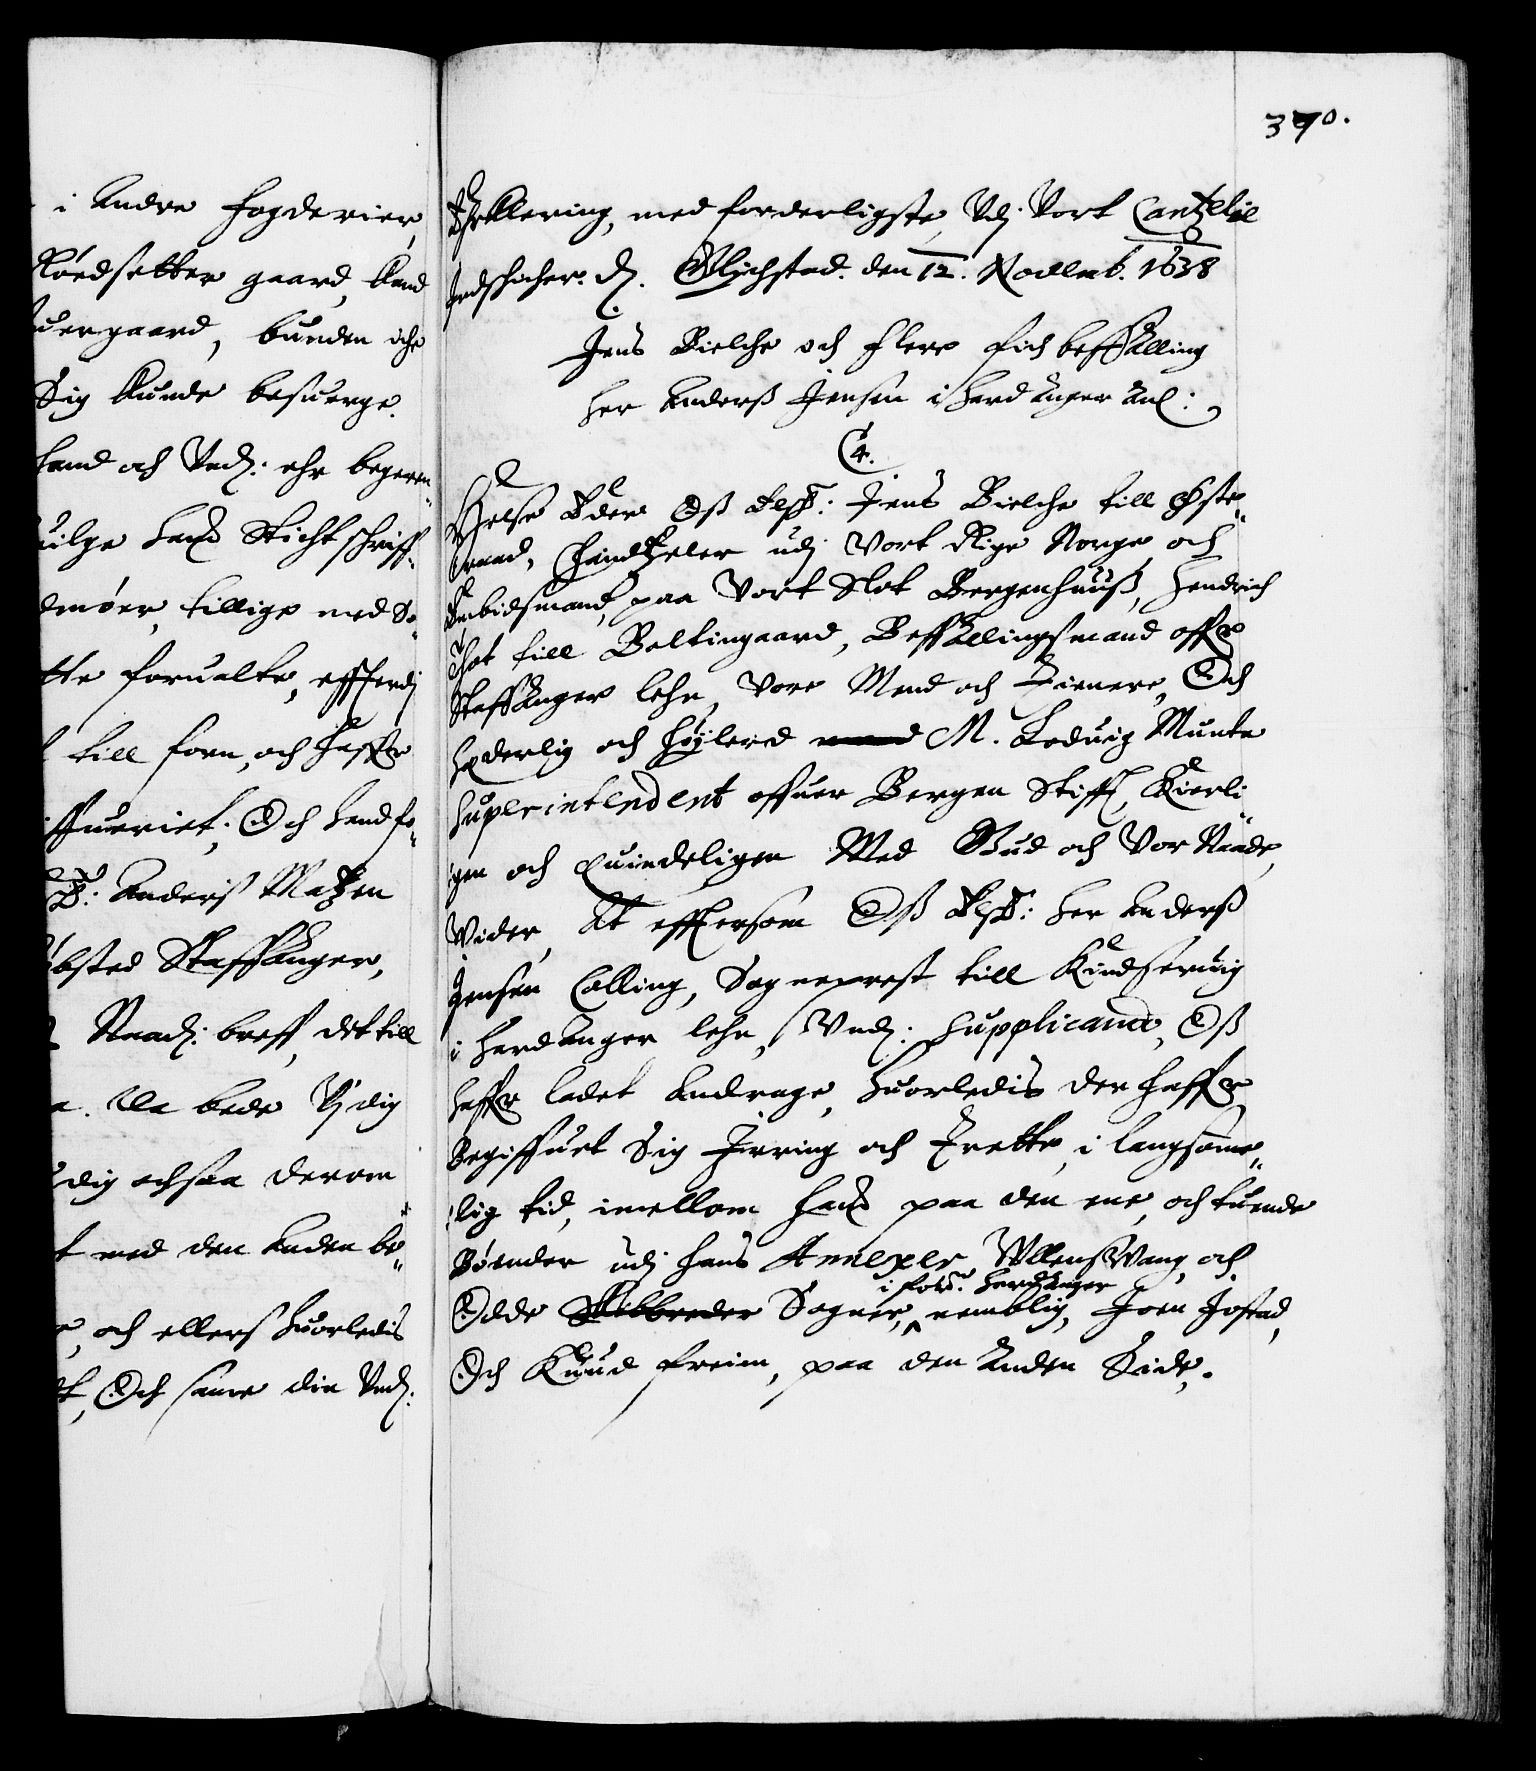 390.
i Andre fogderier,
Nordsetter gaard, kand
uergaard, bunden iche
Sig kunde besuerge.
kand och Und: ehr begeren„
uilge hans Stichtschriff„
dmøer, tillige med So„
tte forualte, effterdj
till forn, och haffr
ffuerriet; Och hand fo„
Anders Matzen
bsted Staffanger,
Naad: breff, der till
a. Ua bede Vj dig
dig ochsaa derom
t med den Anden be„
e, och ellers huorledis
t, Och same din Und:
Erklering, med forderligste, Udj Vort Cantzelie
Indschicher. D. Glychstad. den 12. Nouemb. 1638
Jens Bielche och flere fich beffalling
her Anders Jensen i Hardanger Anl:
4.
Helse Eder Oss Elsk: Jens Bielche till Øste„
Oraad, Chandtzeler udj Vort Rige Norge och
Embidsmand paa Vort Slot Bergenhuus, Hendrich
Thot till Boltingaard, Beffallingsmand offr
Staffanger lehn, Vore Mend och Tienere, Och
hederlig och høylerd M. Loduig Munte
Superintendent offuer Bergen Stifft, Kierli„
gen och quindeligen Med Gud och Vor Naade,
Wider, At effttersom Oss Elsk: her Anders
Jensen Colling, Sogneprest till Kindseruig
i Hardanger lehn, Und: Supplicando, Oss
haffr ladet Andrage, huorledis der haffr
Begiffuet Sig Jrring och Trette, i langsome„
lig tid, imellom hans paa den ene, och tuende
Bønder udj hans Annexer, Ullenswang och
Odde Skibbreder Sogner, i forde: Hardanger nemblig, Joen Jostad,
Och Knud freim, paa den Anden Side,.